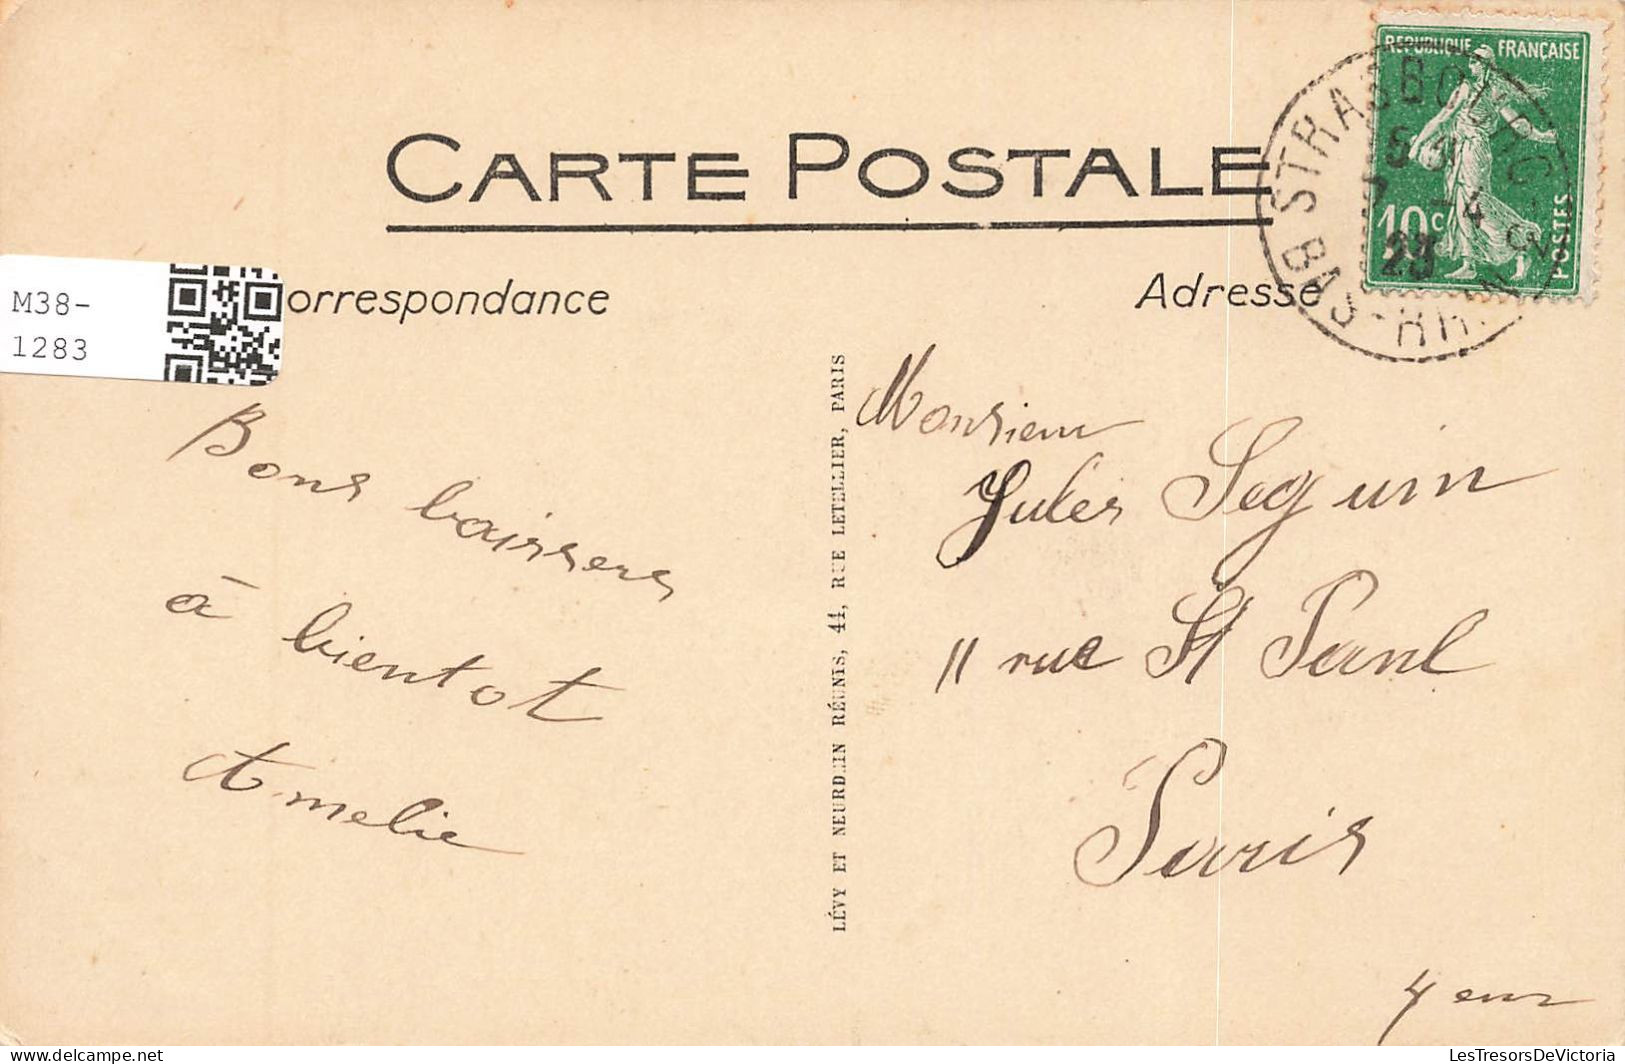 CARTE POSTALE
REPUBLIQUE FRANÇAISE
10c
POSTES
STRASBOURG
BAS-RHIN
-4
23
M38-
1283
orrespondance
Adresse
Bons baisers
à bientot
Amelie
LÉVY ET NEURDEIN RÉUNIS, 44, RUE LETELLIER, PARIS
Monsieur
Jules Seguin
11 rue St Paul
Paris
LesTresorsDeVictoria - delcampe.net